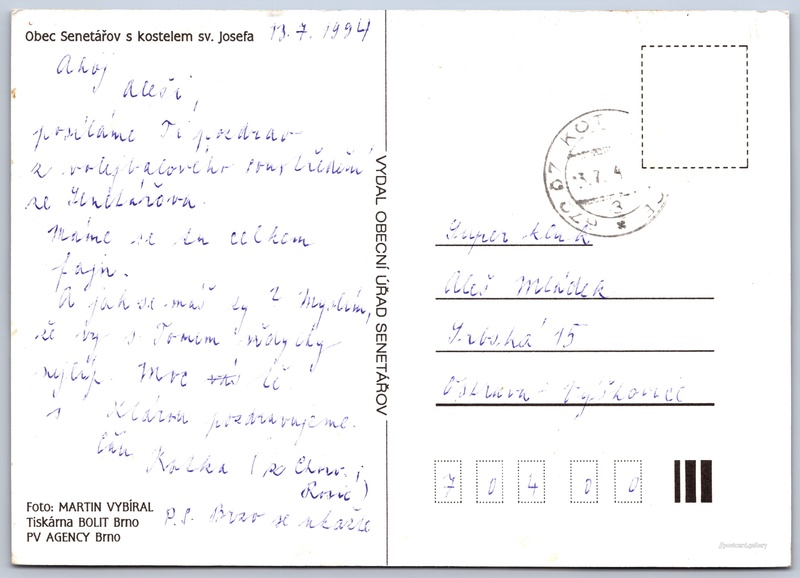 Obec Senetářov s kostelem sv. Josefa
13.7.1994
Ahoj
Aleši,
posíláme Ti pozdrav
z volejbalového soustředění
ze Senetářova.
Máme se tu celkem
fajn.
A jak se máš ty? Myslím,
že vy s Tomem vždycky
nejlíp. Moc vás tě
s Klárou pozdravujeme.
Čau Katka (z Chorv.
P.S. Brzo se ukažte
Foto: MARTIN VYBÍRAL
Tiskárna BOLIT Brno
PV AGENCY Brno
VYDAL OBECNÍ ÚŘAD SENETÁŘOV
Super kluk
Aleš Mládek
Srbská 15
Ostrava - Výškovice
7 0 4 0 0